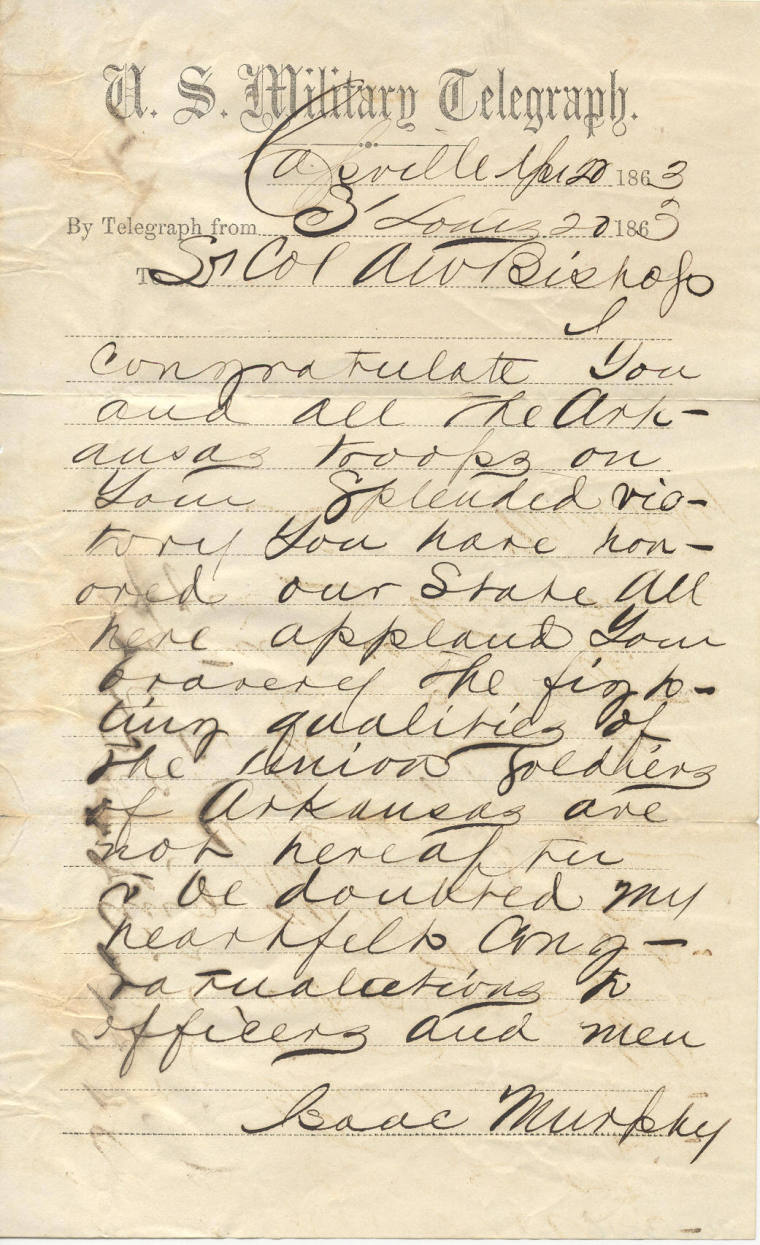 U. S. Military Telegraph.
Cassville Apr 20 1863
By Telegraph from St Louis 20 1863
To Lt Col A W Bishop
I
congratulate You
and all the Ark-
ansas troops on
Your Splended vic-
tory You have hon-
ored our State All
here applaud Your
bravery the figh-
ting qualities of
the Union Soldiers
of Arkansas are
not hereaf ter
to be doubted my
heartfelt Cong-
ratualations to
officers and men
Isaac Murphy